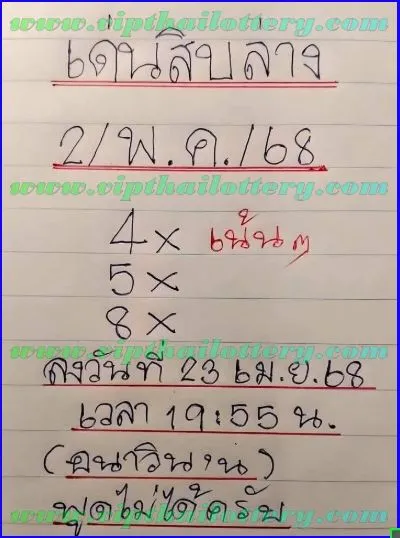 www.vipthailottery.com
เด่นสิบล่าง
2/พ.ค./68
www.vipthailottery.com
4x เน้นๆ
5x
8x
www.vipthailottery.com
ลงวันที่ 23 เม.ย.68
เวลา 19:55 น.
พูดไม่ได้ครับ
www.vipthailottery.com